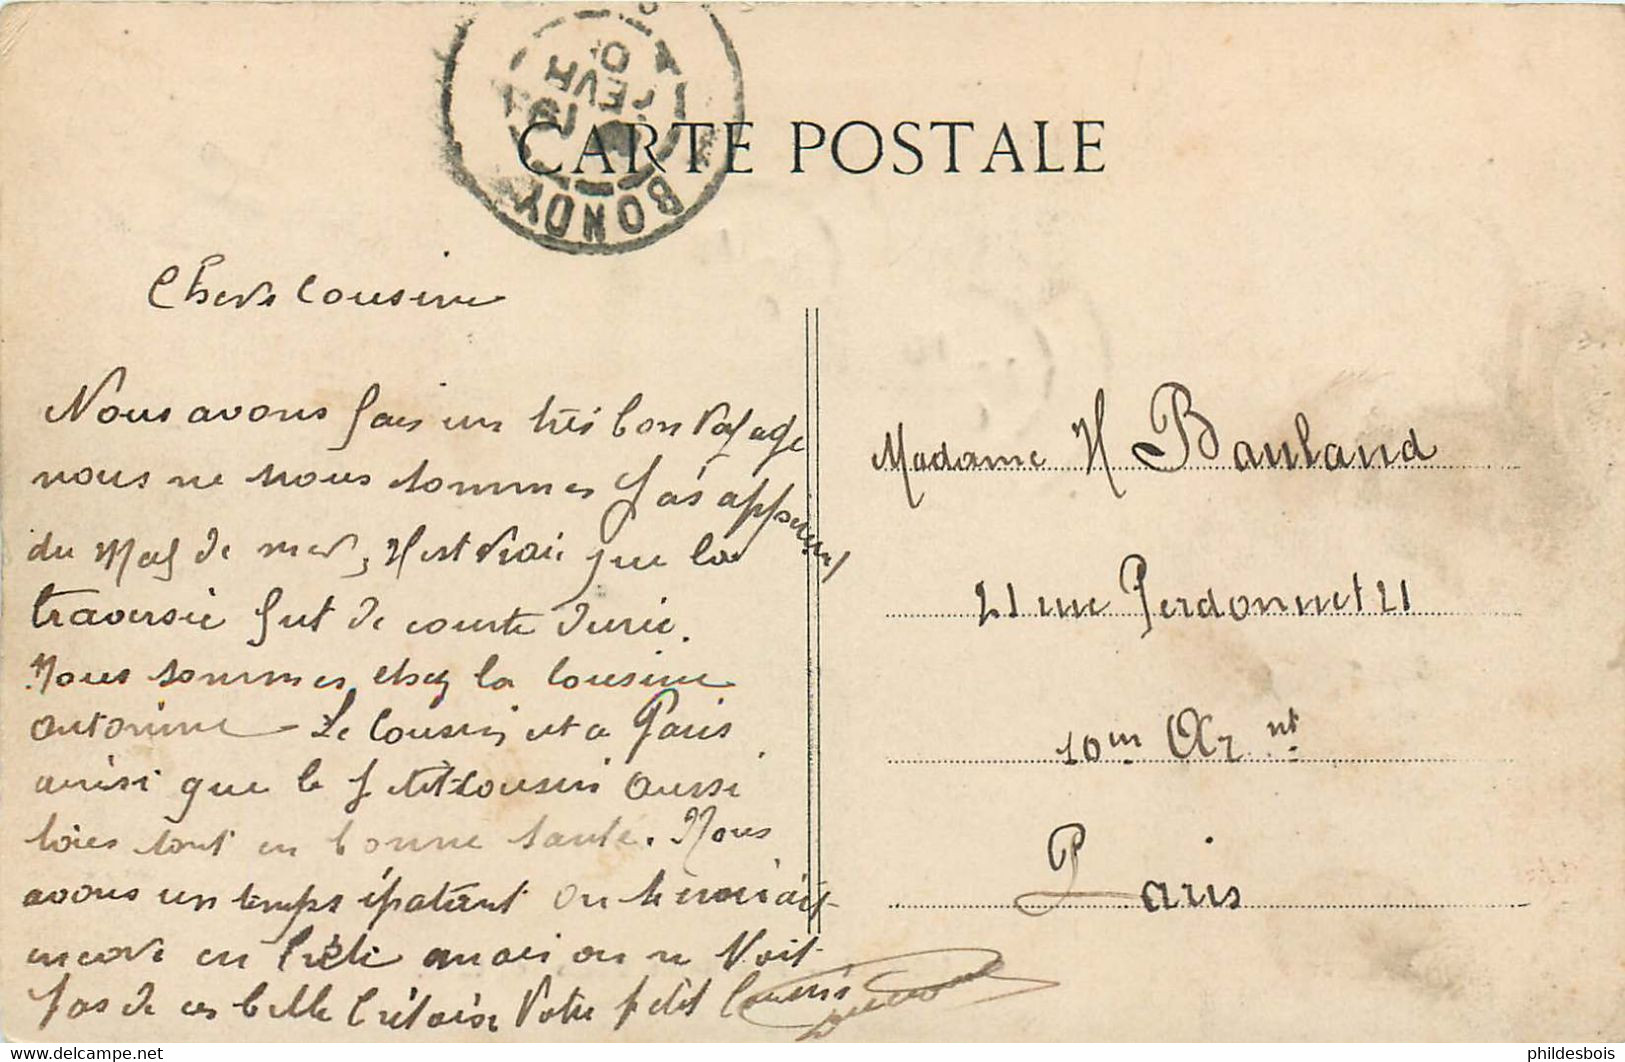 CARTE POSTALE
BONDY
Chers Cousine
Nous avons fais un très bon Voyage
nous ne nous sommes pas apperçus
du Mal de mer, Il est Vrai que la
traversée fut de courte durée.
Nous sommes chez la Cousine
antonine - Le Cousin est a Paris
ainsi que le petit cousin aussi
tous sont en bonne santé. Nous
avons un temps épatant on se croirait
encore en Crète mais on ne Voit
pas de ces belle Crétoise Votre petit Cousin
Madame H Bauland
21 rue Perdonnet 21
10m Arnt
Paris
www.delcampe.net
phildesbois